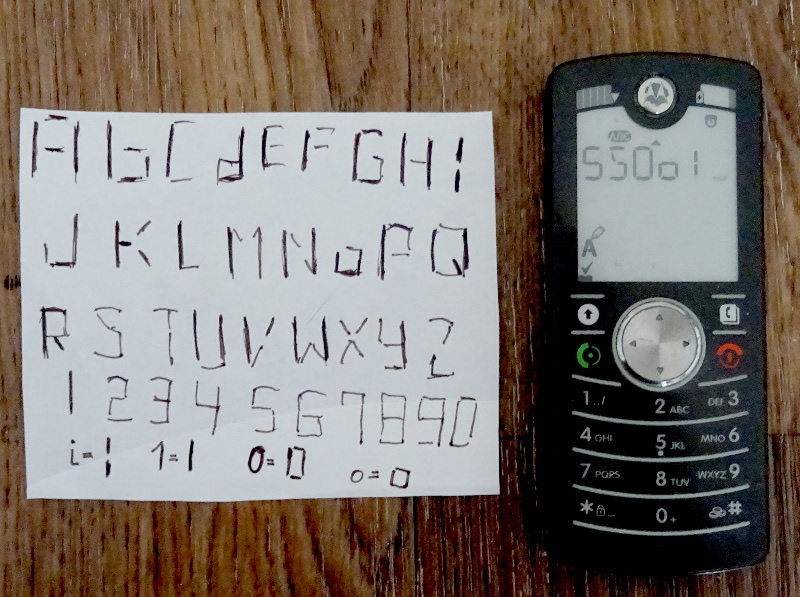 A b C d E F G H I
J K L M N o P Q
R S T U V W X Y Z
1 2 3 4 5 6 7 8 9 0
i=I 1=1 0=0 o=o
ABC
SSOo1_
A
1../ 2 ABC DEF 3
4 GHI 5 JKL MNO 6
7 PQRS 8 TUV WXYZ 9
*_ 0+ #